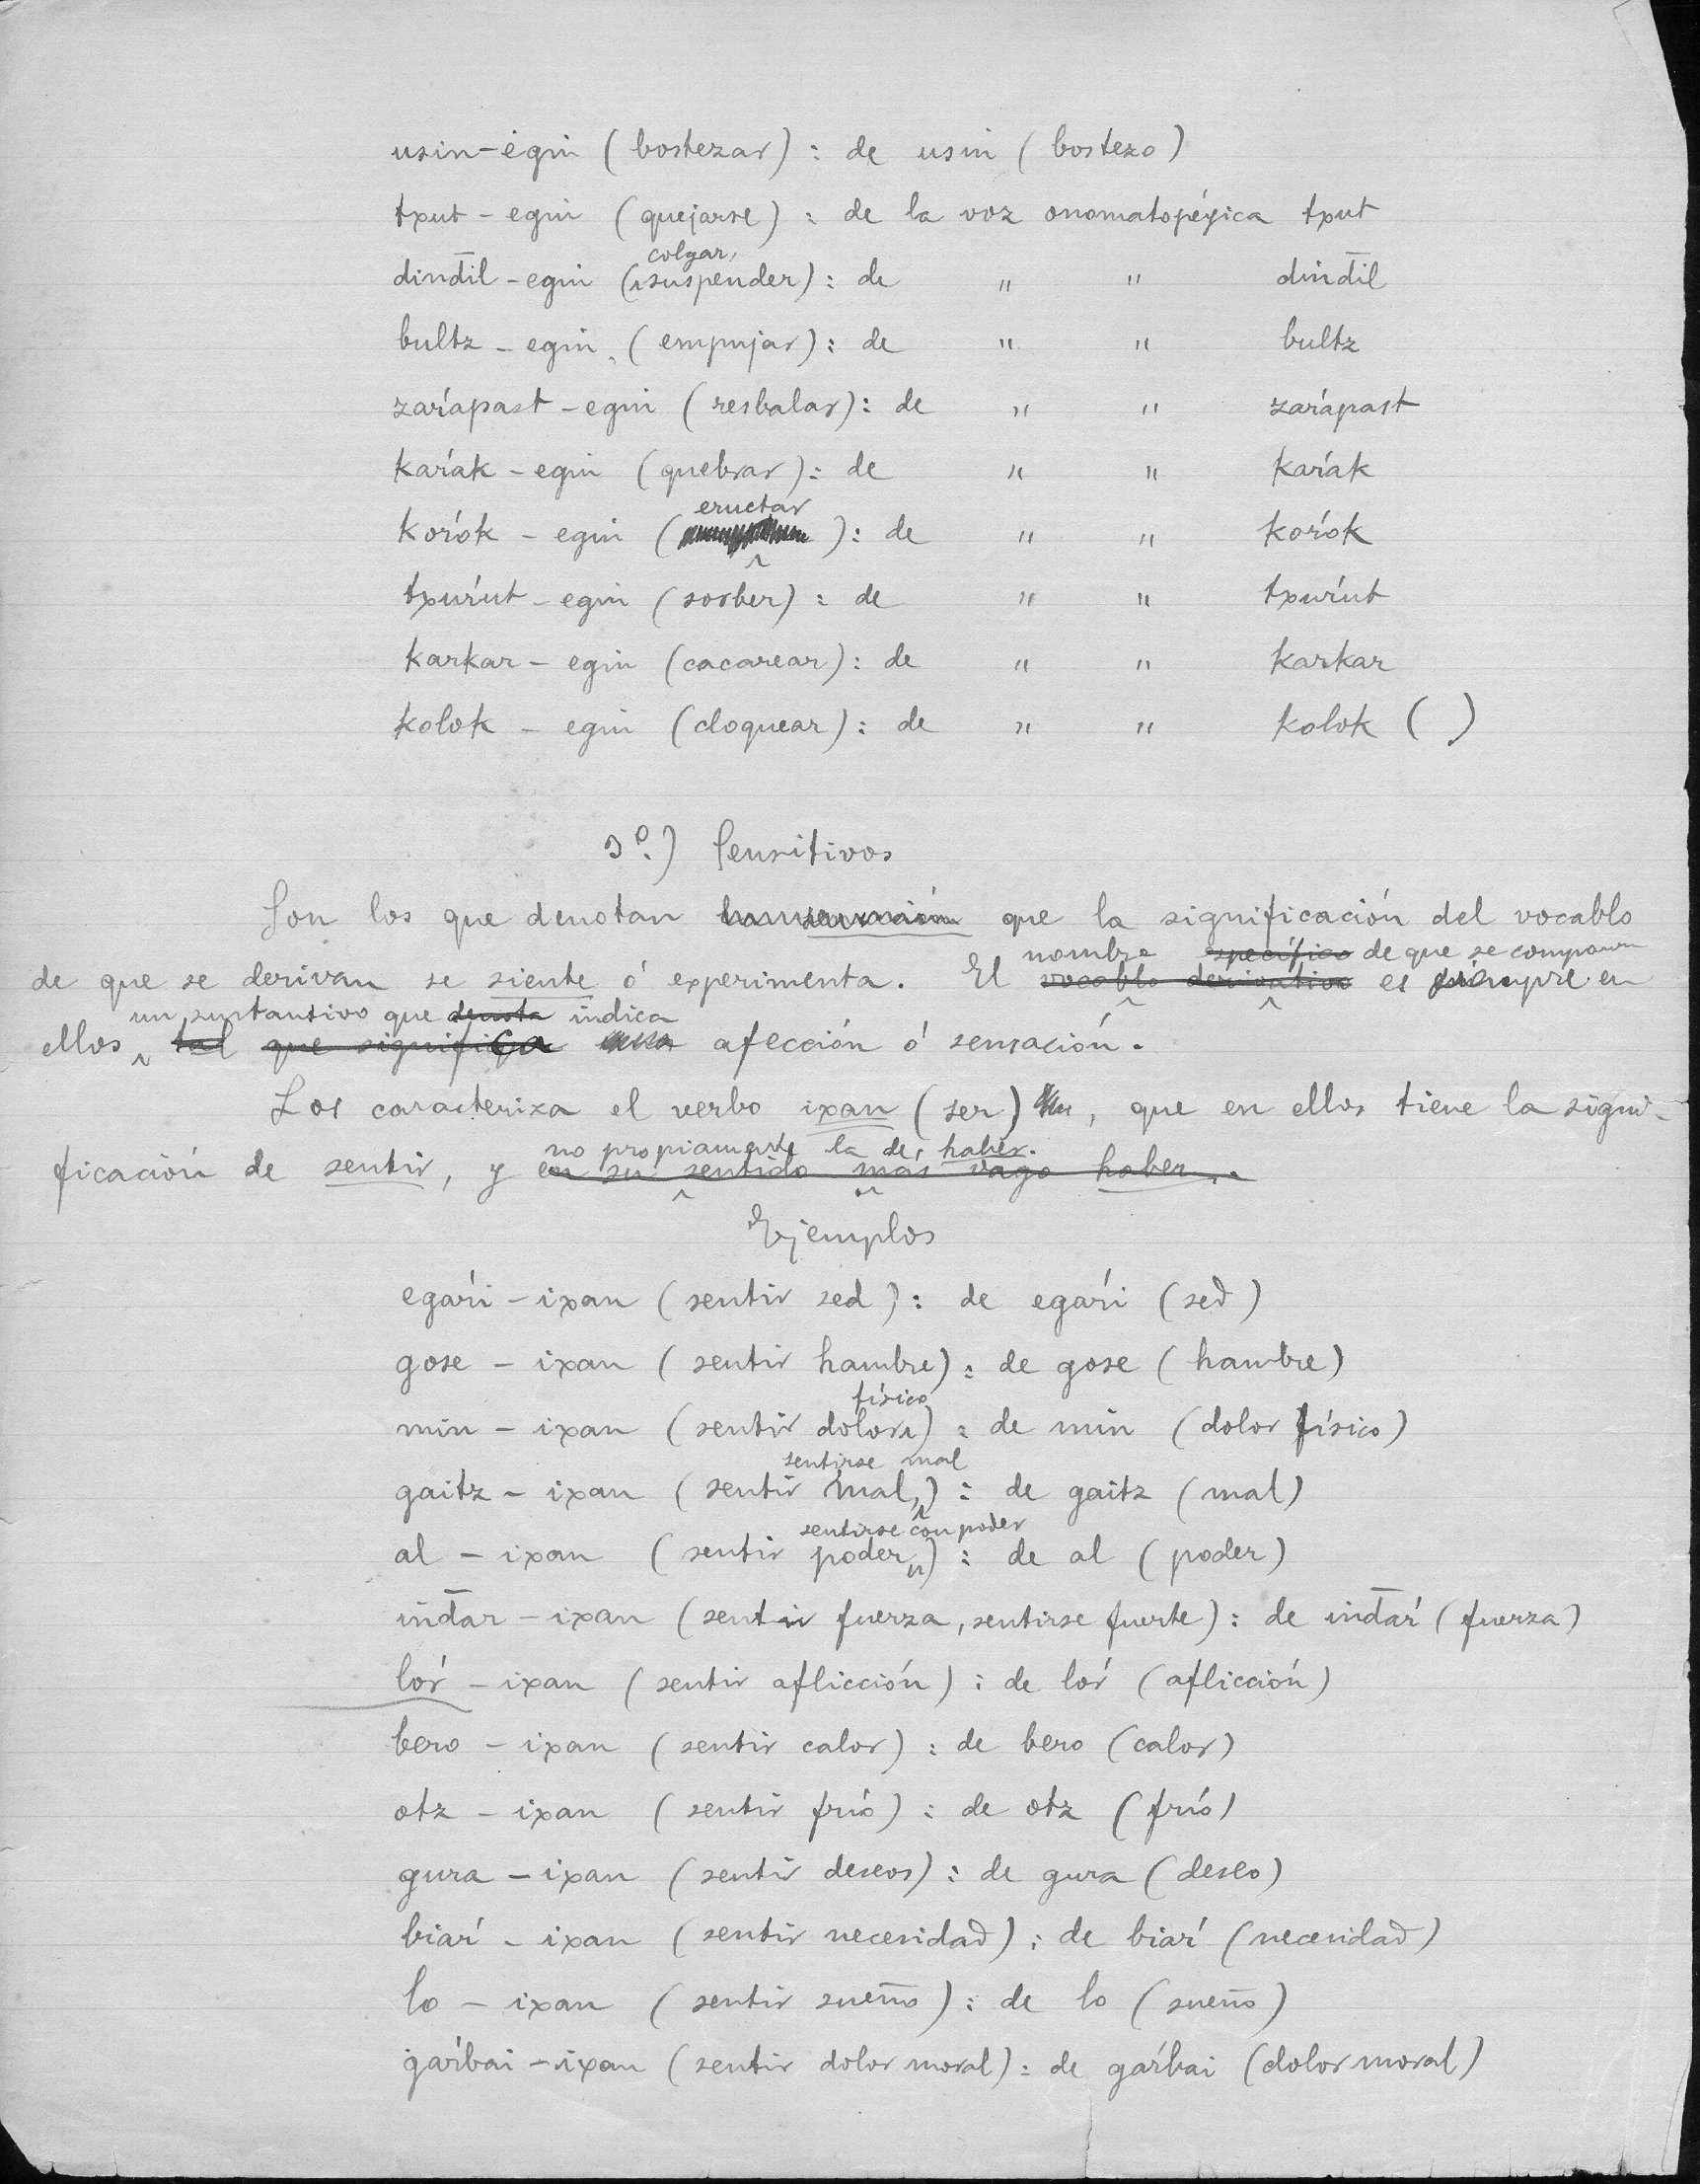 usin-egin (bostezar): de usin (bostezo)
txut-egin (quejarse): de la voz onomatopéyica txut
dind̄il-egin (colgar, suspender): de " " dind̄il
bultz-egin (empujar): de " " bultz
zaŕapast-egin (resbalar): de " " zaŕapast
kaŕak-egin (quebrar): de " " kaŕak
koŕok-egin (eructar): de " " koŕok
txuŕut-egin (sorber): de " " txuŕut
karkar-egin (cacarear): de " " karkar
kolok-egin (cloquear): de " " kolok ( )
3º.) Sensitivos
Son los que denotan que la significación del vocablo
de que se derivan se siente ó experimenta. El nombre específico de que se componen vocablo derivativo es siempre en
ellos un sustantivo que denota indica tal que significa afección ó sensación.
Los caracteriza el verbo ixan (ser), que en ellos tiene la signi-
ficación de sentir, y no propiamente la de haber. en su sentido mas vago haber.
Ejemplos
egaŕi-ixan (sentir sed): de egaŕi (sed)
gose-ixan (sentir hambre): de gose (hambre)
min-ixan (sentir dolor físico): de min (dolor físico)
gaitz-ixan (sentir mal, sentirse mal): de gaitz (mal)
al-ixan (sentir poder, sentirse con poder): de al (poder)
ind̄ar-ixan (sentir fuerza, sentirse fuerte): de ind̄aŕ (fuerza)
loŕ-ixan (sentir aflicción): de loŕ (aflicción)
bero-ixan (sentir calor): de bero (calor)
otz-ixan (sentir frío): de otz (frío)
gura-ixan (sentir deseos): de gura (deseo)
biaŕ-ixan (sentir necesidad): de biaŕ (necesidad)
lo-ixan (sentir sueño): de lo (sueño)
gaŕbai-ixan (sentir dolor moral): de gaŕbai (dolor moral)